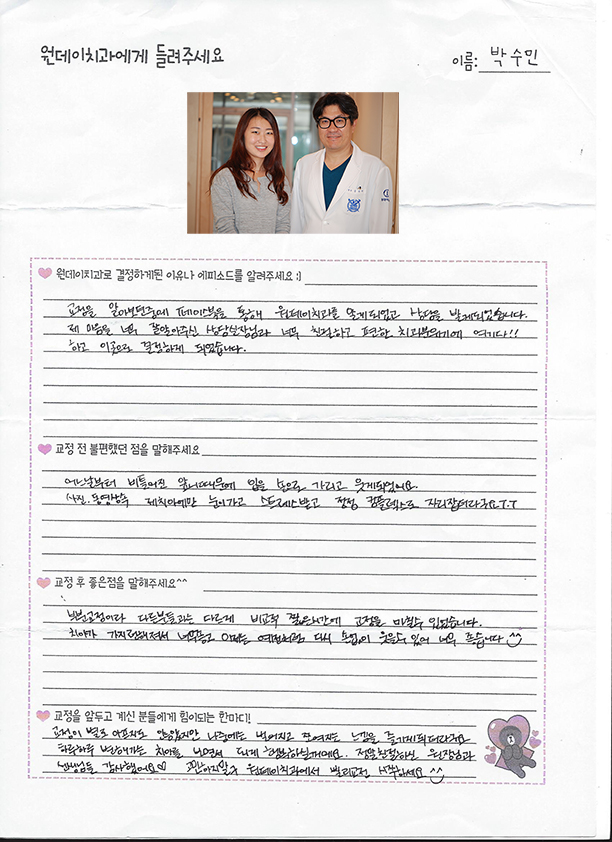 원데이치과에게 들려주세요
이름: 박수민
원데이치과로 결정하게된 이유나 에피소드를 알려주세요 :)
교정을 알아보던중에 페이스북을 통해 원데이치과를 알게되었고 상담을 받게되었습니다.
제 마음을 너무 잘알아주신 상담실장님과 너무 친절하고 편한 치과분위기에 여기다!!
하고 이곳으로 결정하게 되었습니다.
교정 전 불편했던 점을 말해주세요
어느날부터 비틀어진 앞니때문에 입을 손으로 가리고 웃게되었어요.
사진.동영상속 제치아에만 눈이가고 스트레스받고 점점 컴플렉스로 자리잡더라구요T.T
교정 후 좋은점을 말해주세요^^
부분교정이라 다른분들과는 다르게 비교적 짧은시간에 교정을 마칠수 있었습니다.
치아가 가지런해져서 너무좋고 이제는 예전처럼 다시 손없이 웃을수 있어 너무 좋습니다
교정을 앞두고 계신 분들에게 힘이되는 한마디!
교정이 별로 아프지도 않았지만 나중에는 벌어지고 모여지는 느낌을 즐기게되더라구요
하루하루 변해가는 치아를 보면서 되게 행복하실거에요. 정말친절하신 원장님과
선생님들 감사했어요♡ 고민하지말고 원데이치과에서 빨리교정 시작하세요